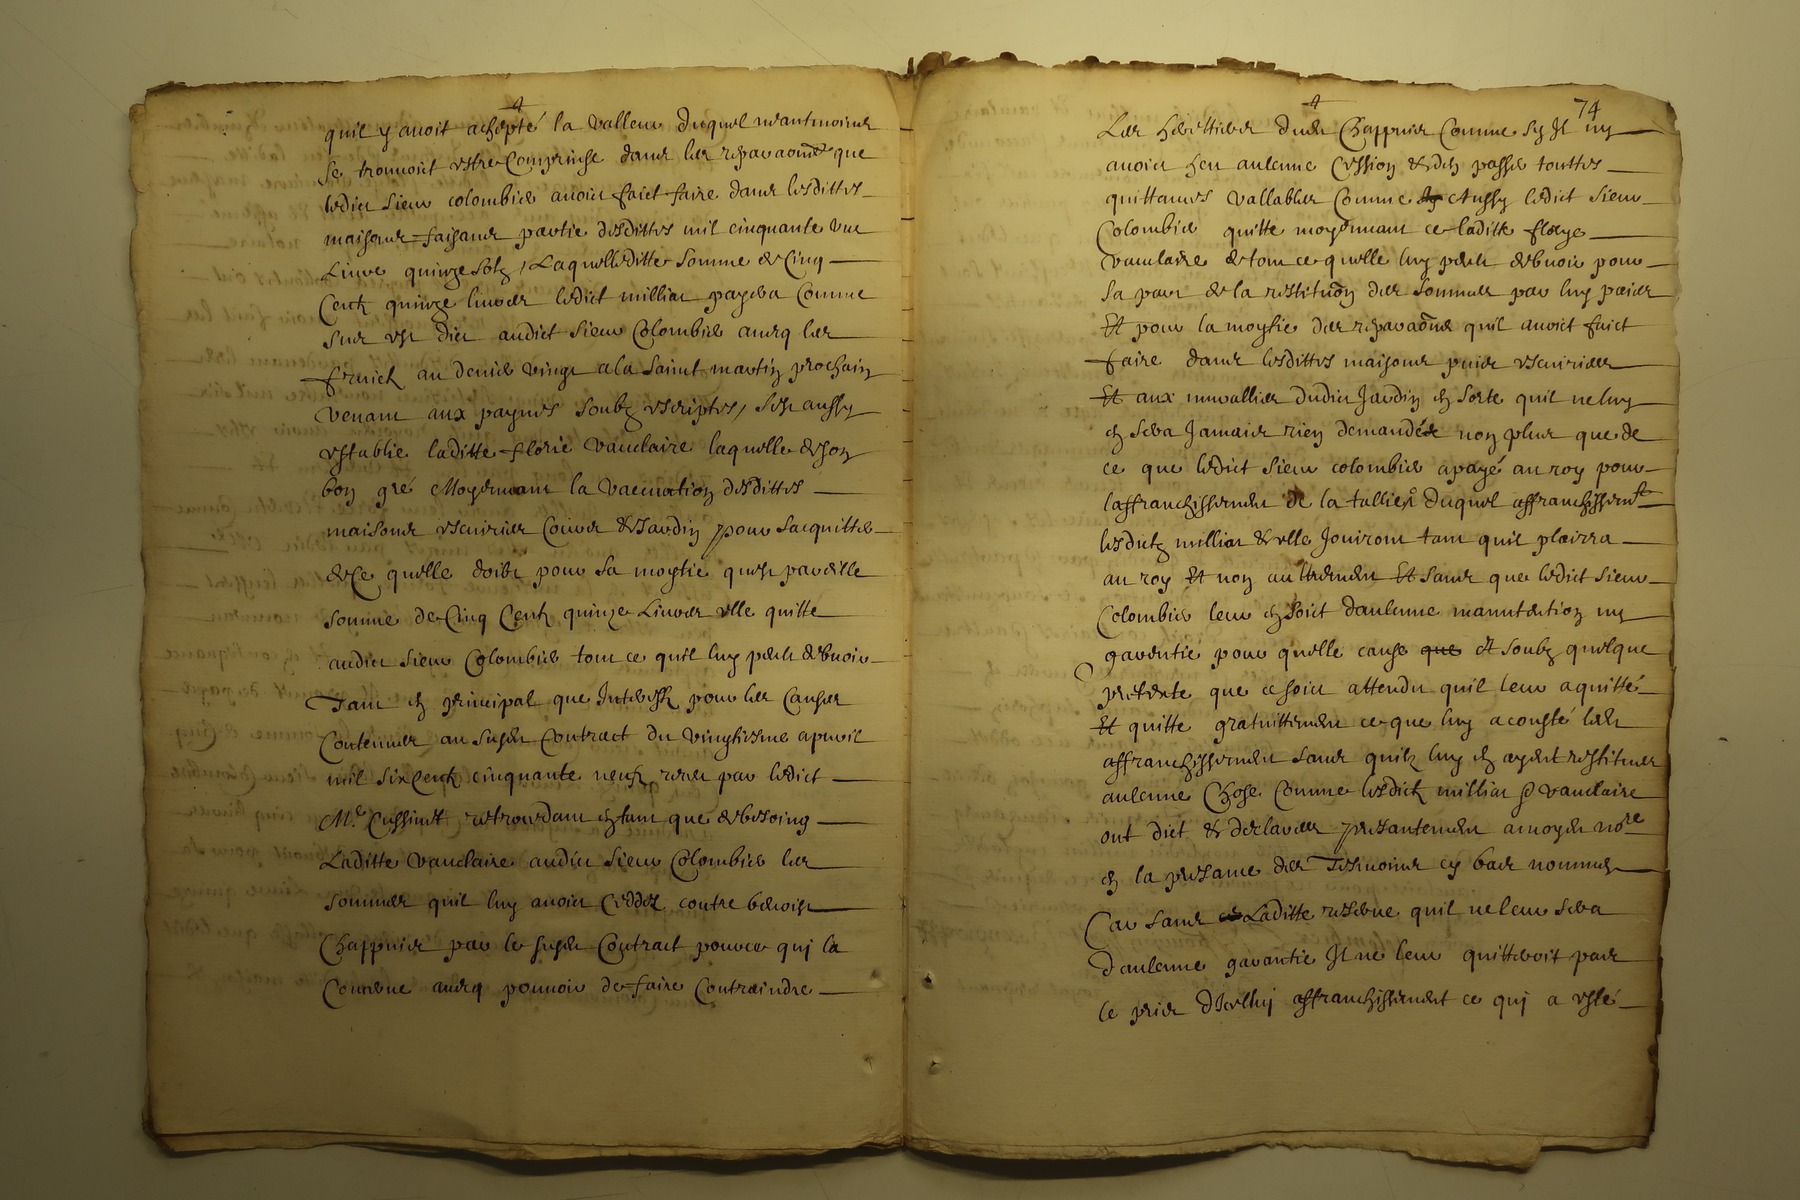 4
quil y avoit achepté la valleur duquel neantmoins
se trouvoit estre comprinse dans les reparaons que
ledict sieur colombier avoict faict faire dans lesdittes
maisons faisans partie desdittes mil cinquante une
Livre quinze solz, Laquelleditte somme de Cinq
Centz quinze livres ledict millian payera Comme
sus est dict audict sieur Colombier avecq les
fruictz au denier vingt a la saint martin prochain
venant aux paynes soubz escriptes, sest aussy
establie laditte florie vauclaire laquelle de son
bon gré Moyennant la vacuation desdittes
maisons escuiries Couver et Jardin pour sacquitter
de Ce quelle doibt pour sa moytie quest pareille
somme de Cinq Centz quinze Livres elle quitte
audict sieur Colombier tout ce quil luy peult debvoir
Tant en principal que Interestz pour les Causes
Contenues au susdit Contract du vingtiesme apvril
mil six Centz cinquante neufz receu par ledict
Me Cussinet retrocedant entant que de besoing
Laditte vauclaire audict sieur Colombier les
sommes quil luy avoict Ceddez contre benoist
Chappuis par le susdit Contract pour ce qui la
Concerne avecq pouvoir de faire Contraindre
4
74
Les heretiers dudit Chappuis Comme sy Il ny
avoict heu aulcune Cession et den passer touttes
quittances vallables Comme Aussy ledict sieur
Colombier quitte moyennant ce laditte florye
vauclaire de tout ce quelle luy peult debvoir pour
sa part de la restitution des sommes par luy paiees
Et pour la moytie des reparaons quil avoict faict
faire dans lesdittes maisons puis escuiries
Et aux muraillies dudict Jardin en sorte quil ne luy
en sera Jamais rien demandé non plus que de
ce que ledict sieur colombier a payé au roy pour
laffranchissement de la tallier duquel affranchissemt
lesdictz millian et elle Joiront tant quil plairra
au roy Et non aultrement Et sans que ledict sieur
Colombier leur en soict daulcune manutention ny
garentie pour quelle cause que et soubz quelque
pretexte que ce soict attendu quil leur a quitté
Et quitte gratuittement ce que luy a cousté ledit
affranchissement sans quilz luy en ayent restituer
aulcune Chose Comme lesdictz millian et vauclaire
ont dict et declarer presantement a moydit nore
en la presance des Tesmoins cy bas nommes
Car sans Laditte reserve quil ne leur sera
daulcune garantie Il ne leur quitteroit pas
le pris dIcelluy affranchissement ce qui a esté